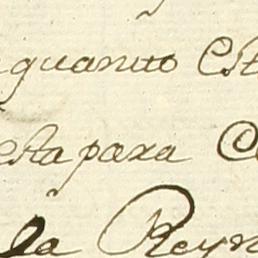 quanto Est
esta para C
la Reyn